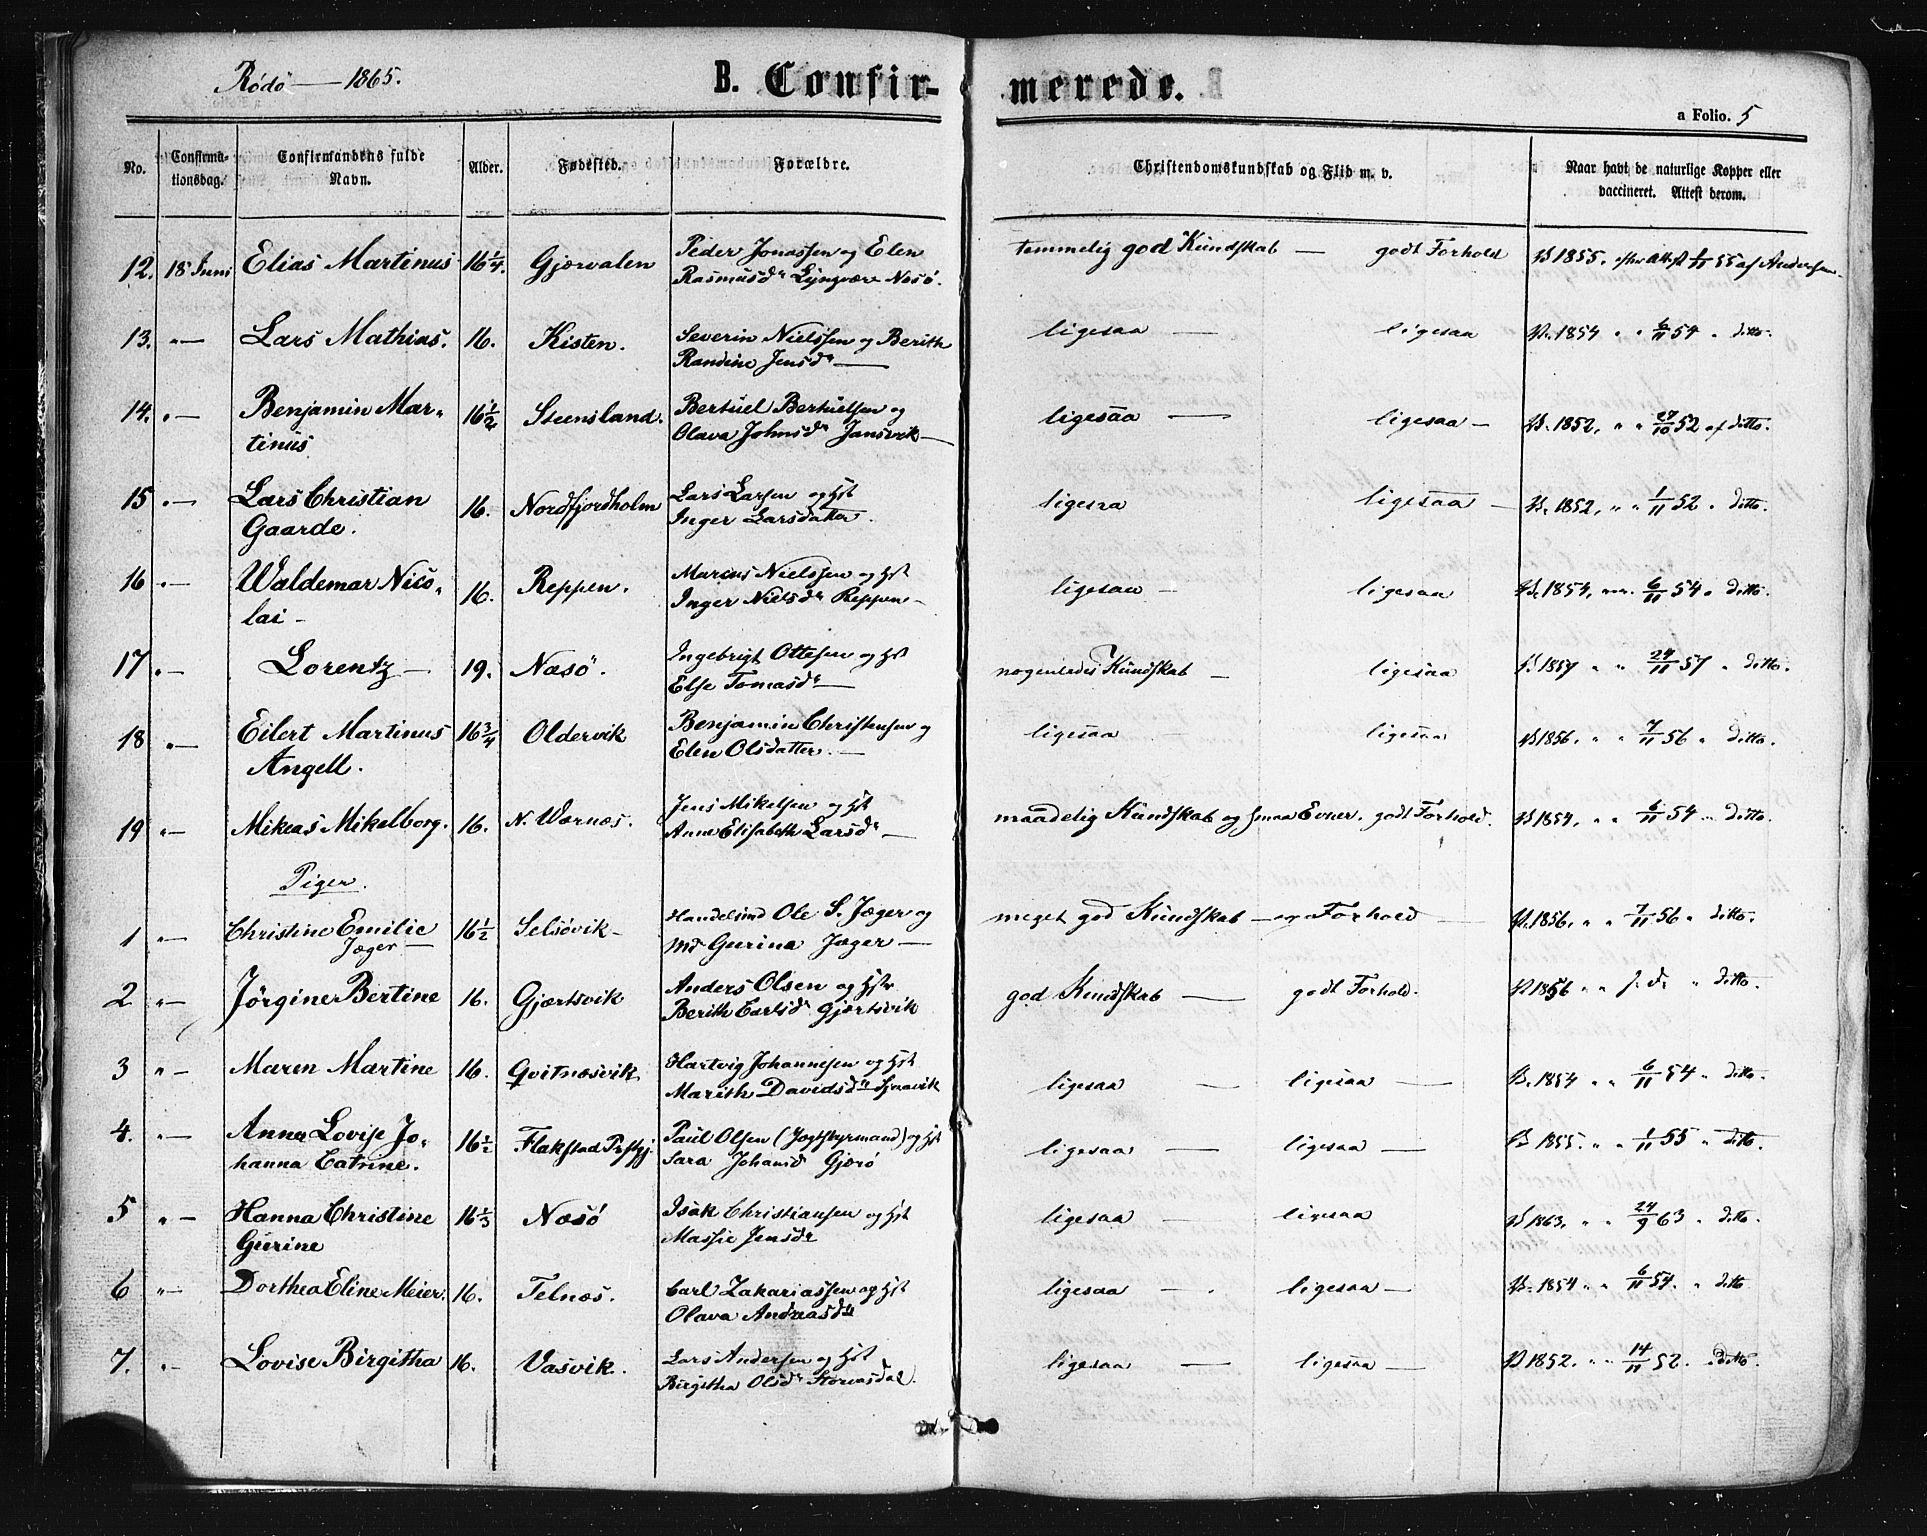 Rödö — 1865.
B. Confir-
merede.
a Folio. 5
No.
Confirma-
tionsdag.
Confirmandens fulde
Navn.
Alder.
Fødested.
Forældre.
Christendomskundskab og Flid m. v.
Naar havt de naturlige Kopper eller
vaccineret. Attest derom.
12. 18 Juni Elias Martinus 16 1/4. Gjærvalen Peder Jonassen og Elen
Rasmusdr Lyngvær Næsö. temmelig god Kundskab — godt Forhold V 1855. efter attest 1/11 55 af Andersen.
13. " — Lars Mathias. 16. Kisten. Severin Nielssen og Berith
Randine Jensdr — ligesaa — ligesaa V. 1854 " " 6/11 54 " ditto.
14. " — Benjamin Mar-
tinus 16 1/2 Steensland. Bertuel Bertuelsen og
Olava Johnsdr Jansvik — ligesaa — ligesaa — V. 1852, " " 27/10 52 af ditto.
15 " — Lars Christian
Gaarde. 16. Nordfjordholm Lars Larsen og Hst
Inger Larsdatter. ligesaa ligesaa — V. 1852, " " 1/11 52 " ditto.
16 " — Waldemar Nico-
lai — 16. Reppen. Marcus Nielssen og Hst
Inger Nielsdr Reppen — ligesaa — ligesaa V. 1854, " " 6/11 54 " ditto.
17 " — Lorentz — 19. Næsö. Ingebrigt Ottesen og Hst
Else Tomasdr — nogenledes Kundskab — ligesaa V. 1857 " " 24/11 57 " ditto.
18 " — Eilert Martinus
Angell. 16 3/4 Oldervik Benjamin Christensen og
Elen Olsdatter. — ligesaa ligesaa V 1856. " " 7/11 56 " ditto.
19 " — Mikeas Mikelborg. 16. N. Værnæs. Jens Mikelsen og Hst
Anne Elisabeth Larsdr — maadelig Kundskab og smaa Evner. godt Forhold. V 1854, " " 6/11 54 " ditto.
Piger.
1 " — Christine Emilie
Jæger — 16 1/2 Selsövik — Handelsmd Ole S. Jæger og
Md Gurina Jæger — meget god Kundskab — og Forhold — V. 1856, " " 7/11 56 " ditto.
2 " — Jörginer Bertine 16. Gjærtsvik Anders Olsen og Hstr
Berith Carlsdr Gjærtsvik god Kundskab — godt Forhold. V 1856 " " s. d. " ditto.
3 " — Maren Martine 16. Qvitnæsvik Hartvig Johannesen og Hst
Marith Davidsdr ligesaa — ligesaa — V. 1854 " " 6/11 54 " ditto.
4. " — Anna Lovise Jo-
hanna Catrine. 16 1/2 Flakstad Præstgj. Paul Olsen og Hst
Sara Johansd Gjærö ligesaa — ligesaa — V 1855. " " 1/11 55 " ditto.
5 " — Hanna Christine
Gurine 16 1/3 Næsö Isak Christiansen og Hst
Massie Jensdr ligesaa — ligesaa V 1863. " " 24/9 63 " ditto.
6 " — Dorthea Eline Meier. 16. Telnæs. Carl Zakariassen og Hst
Olava Andreasdr ligesaa — ligesaa — V. 1854 " " 6/11 54. " ditto
7. " — Lovise Birgitha 16. Vasvik. Lars Andersen og Hst
Birgitha Olsdr Storvasdal. ligesaa — ligesaa — V 1852. " " 14/11 52. " ditto.